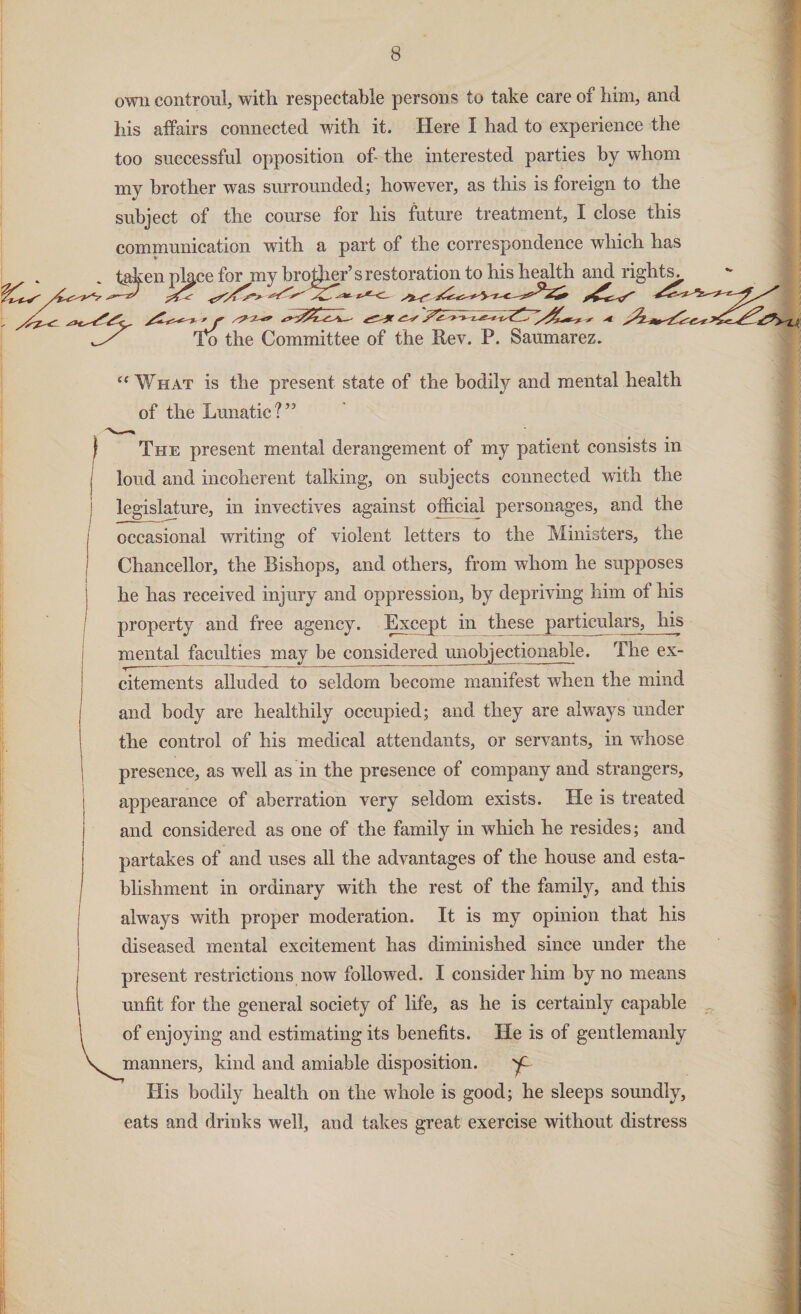 8
own controul, with respectable persons to take care of him, and
his affairs connected with it. Here I had to experience the
too successful opposition of the interested parties by whom
my brother was surrounded; however, as this is foreign to the
subject of the course for his future treatment, I close this
communication with a part of the correspondence which has
taken place for my brother's restoration to his health and rights.
To the Committee of the Rev. P. Saumarez.
“What is the present state of the bodily and mental health
of the Lunatic?”
The present mental derangement of my patient consists in
loud and incoherent talking, on subjects connected with the
legislature, in invectives against official personages, and the
occasional writing of violent letters to the Ministers, the
Chancellor, the Bishops, and others, from whom he supposes
he has received injury and oppression, by depriving him of his
property and free agency. Except in these particulars, his
mental faculties may be considered unobjectionable. The ex-
citements alluded to seldom become manifest when the mind
and body are healthily occupied; and they are always under
the control of his medical attendants, or servants, in whose
presence, as well as in the presence of company and strangers,
appearance of aberration very seldom exists. He is treated
and considered as one of the family in which he resides; and
partakes of and uses all the advantages of the house and esta-
blishment in ordinary with the rest of the family, and this
always with proper moderation. It is my opinion that his
diseased mental excitement has diminished since under the
present restrictions now followed. I consider him by no means
unfit for the general society of life, as he is certainly capable
of enjoying and estimating its benefits. He is of gentlemanly
manners, kind and amiable disposition.
His bodily health on the whole is good; he sleeps soundly,
eats and drinks well, and takes great exercise without distress